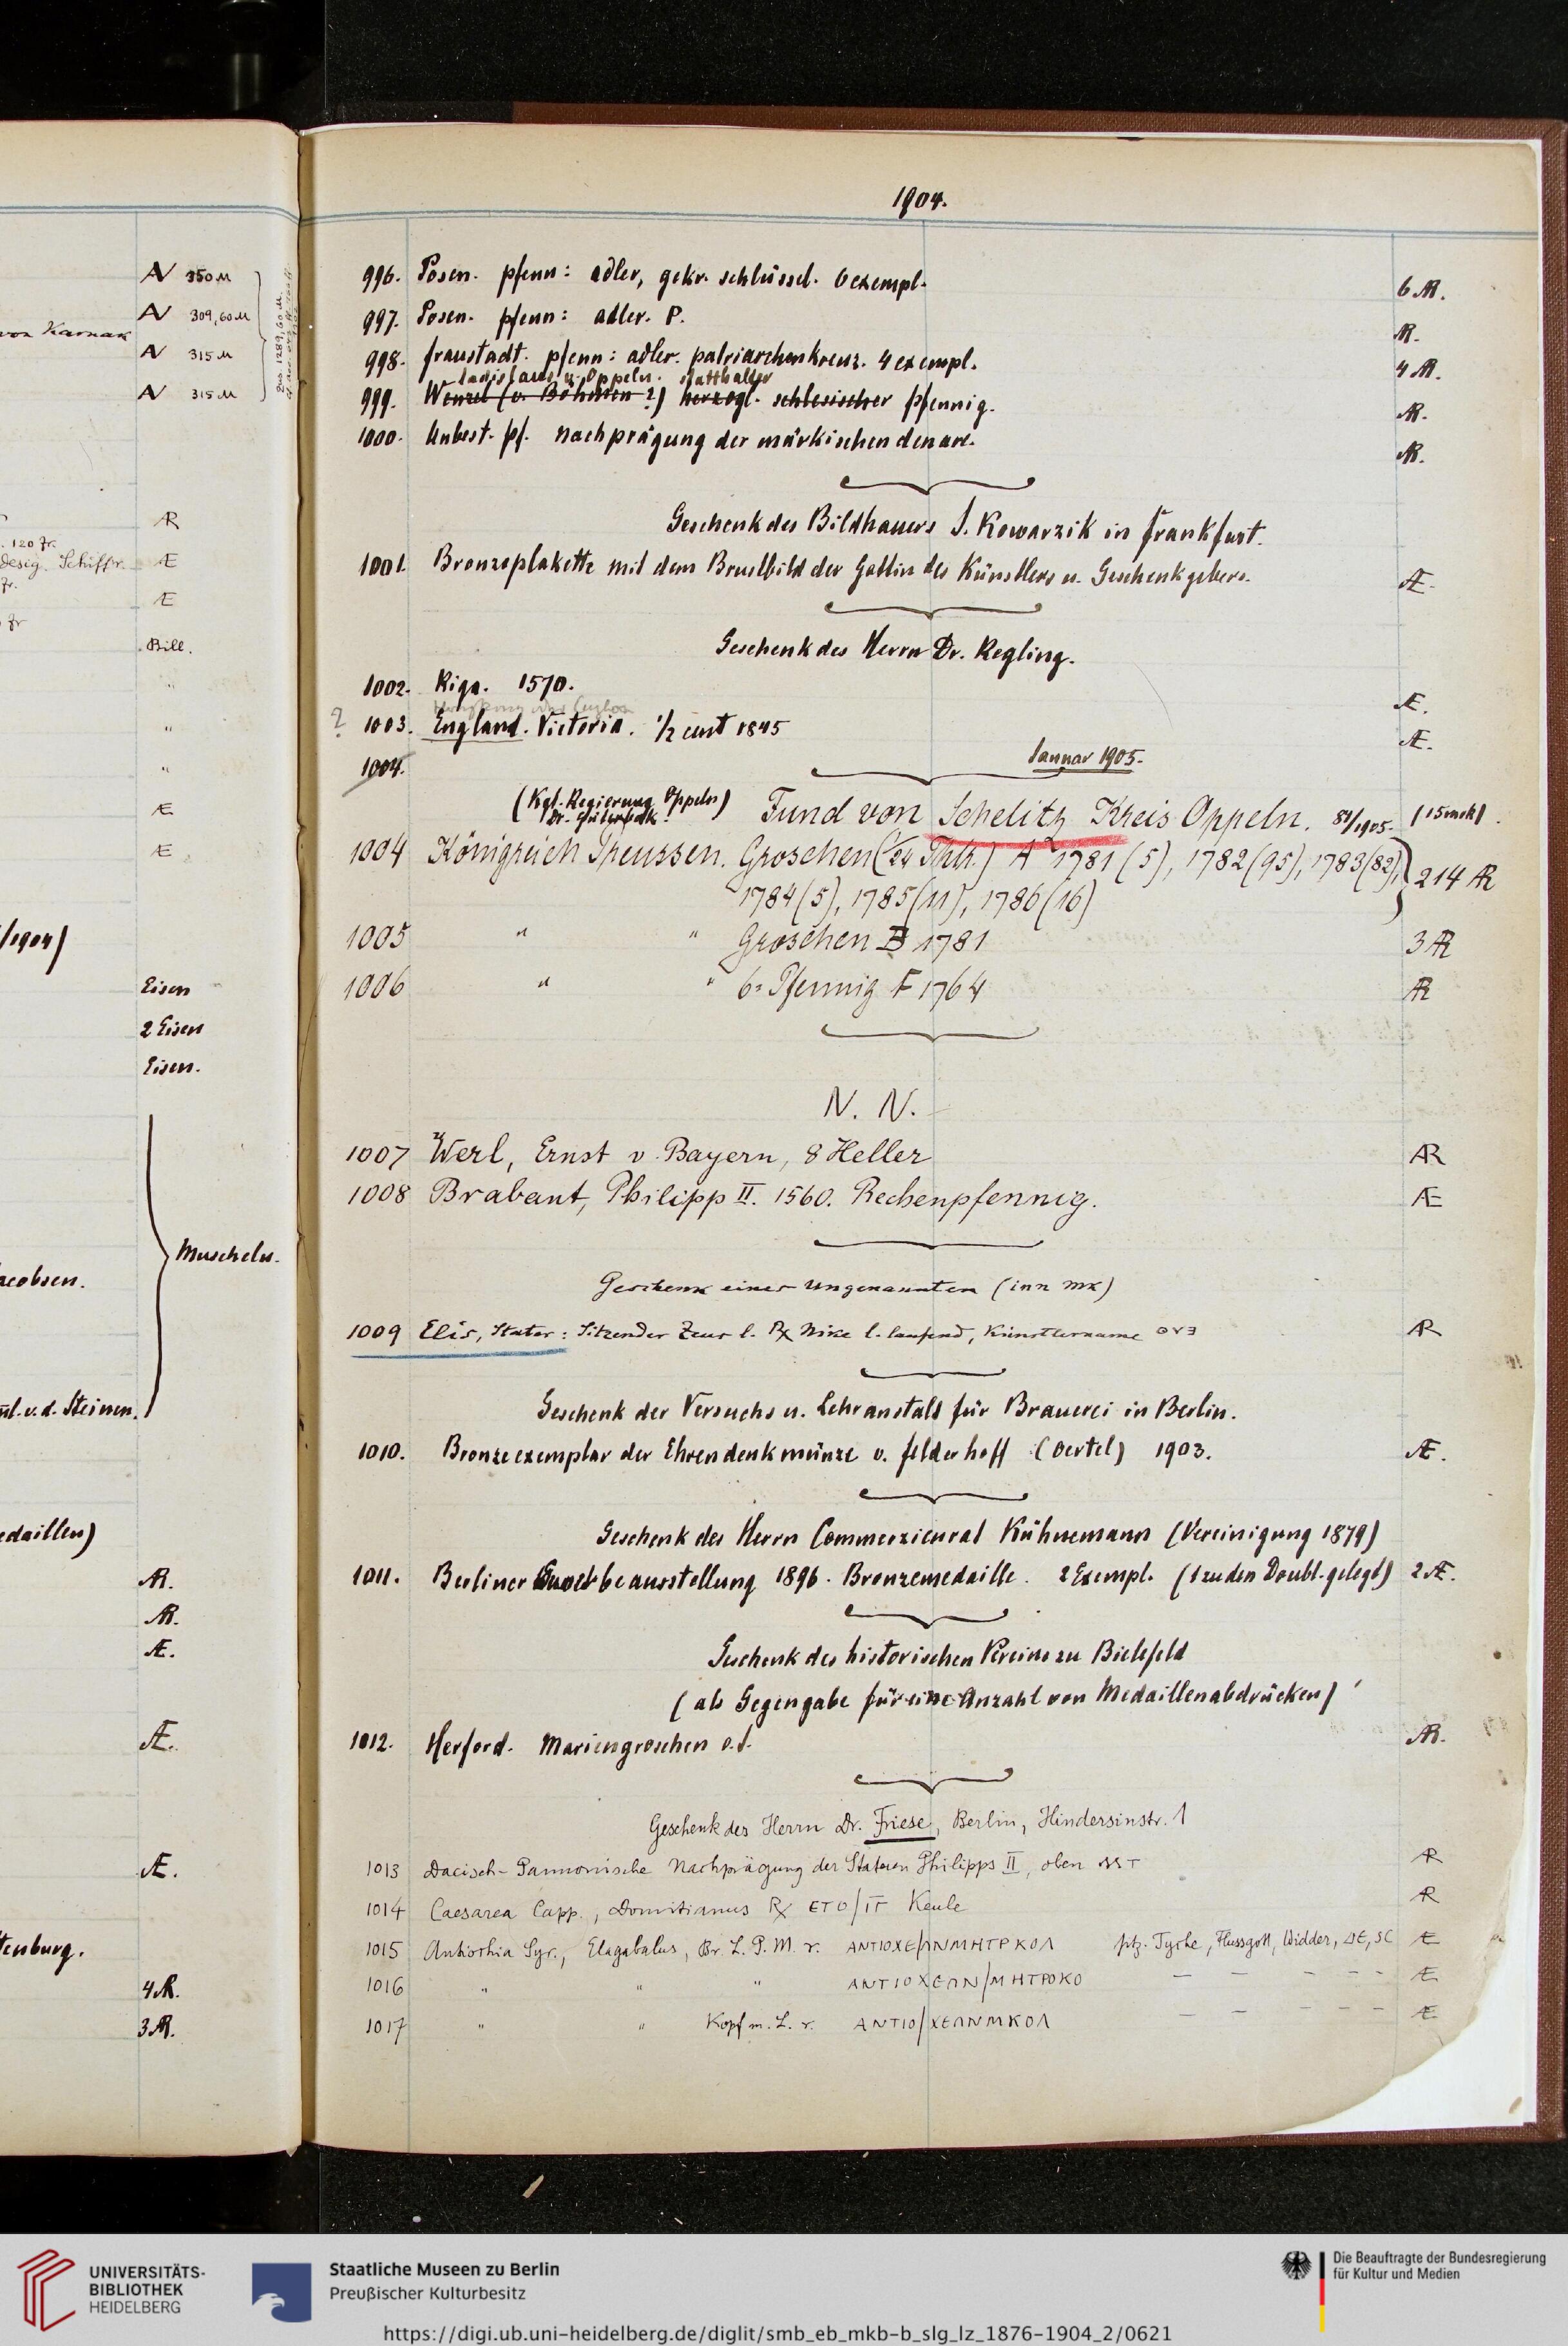 1904.
AV 350 M
AV 309,60 M
von Karnak
AV 315 M
AV 315 M
AR
120 fr.
desig. Schiffr. Æ
fr.
Æ
fr
Bill.
"
"
"
Æ
Æ
/1904)
Eisen
2 Eisen
Eisen.
Muscheln.
acobsen.
v. d. Steinen.
edaillen)
AR.
AR.
Æ.
Æ.
Æ.
tenburg.
4 AR.
3 AR.
996. Posen. pfenn: adler, gekr. schlüssel. 6 exempl. 6 AR.
997. Posen. pfenn: adler. P. AR.
998. fraustadt. pfenn: adler. patriarchenkreuz. 4 exempl. 4 AR.
Ladislaus v. Oppeln. statthalter
999. Wenzel (v. Böhmen ?) herzogl. schlesischer pfennig. AR.
1000. Unbest. pf. Nachprägung der märkischen denare. AR.
Geschenk des Bildhauers J. Kowarzik in frankfurt.
1001. Bronzeplakette mit dem Brustbild der Gattin des Künstlers u. Geschenkgebers. Æ.
Geschenk des Herrn Dr. Regling.
1002. Riga. 1570. Æ.
Ceylon
? 1003. England. Victoria. 1/2 cent 1845 Æ.
1004. Januar 1905.
(Kgl. Regierung Oppeln) Fund von Schelitz Kreis Oppeln. 84/1905. (15 mrk).
1004 Königreich Preussen. Groschen (1/24 Thlr.) A 1781 (5), 1782 (95), 1783 (82), 214 AR
1784 (5), 1785 (11), 1786 (16)
1005 " " Groschen B 1781 3 AR
1006 " " 6-Pfennig F 1764 AR
N. N.
1007 Werl, Ernst v. Bayern, 8 Heller AR
1008 Brabant, Philipp II. 1560. Rechenpfennig. Æ
Geschenk eines Ungenannten (inn mk)
1009 Elis, Stater: Sitzender Zeus l. Rx Nike l. laufend, Künstlername AR
Geschenk der Versuchs u. Lehranstalt für Brauerei in Berlin.
1010. Bronzeexemplar der Ehrendenkmünze v. felderhoff (Oertel) 1903. Æ.
Geschenk des Herrn Commerzienrat Kühnemann (Vereinigung 1879)
1011. Berliner Gewerbeausstellung 1896. Bronzemedaille. 2 Exempl. (1 zu den Doubl. gelegt) 2 Æ.
Geschenk des historischen Vereins zu Bielefeld
(als Gegengabe für eine Anzahl von Medaillenabdrücken)
1012. Herford. Mariengroschen o. J. AR.
Geschenk des Herrn Dr. Friese, Berlin, Hindersinstr. 1
1013 Dacisch-Pannonische Nachprägung der Stateren Philipps II, oben AR
1014 Caesarea Capp., Domitianus Rx ETO/IΓ Keule AR
1015 Antiochia Syr., Elagabalus, Br. L. P. M. r. ANTIOXE/ΛNMHTPKOΛ ptz. Tyche, Flussgott, Widder, ΔE, SC Æ
1016 " " " ANTIOXEΛN/MHTPOKO – – – – – Æ
1017 " " Kopf m. L. r. ANTIO/XEΛNMKOΛ – – – – – Æ
UNIVERSITÄTS-
BIBLIOTHEK
HEIDELBERG
Staatliche Museen zu Berlin
Preußischer Kulturbesitz
Die Beauftragte der Bundesregierung
für Kultur und Medien
https://digi.ub.uni-heidelberg.de/diglit/smb_eb_mkb-b_slg_lz_1876-1904_2/0621